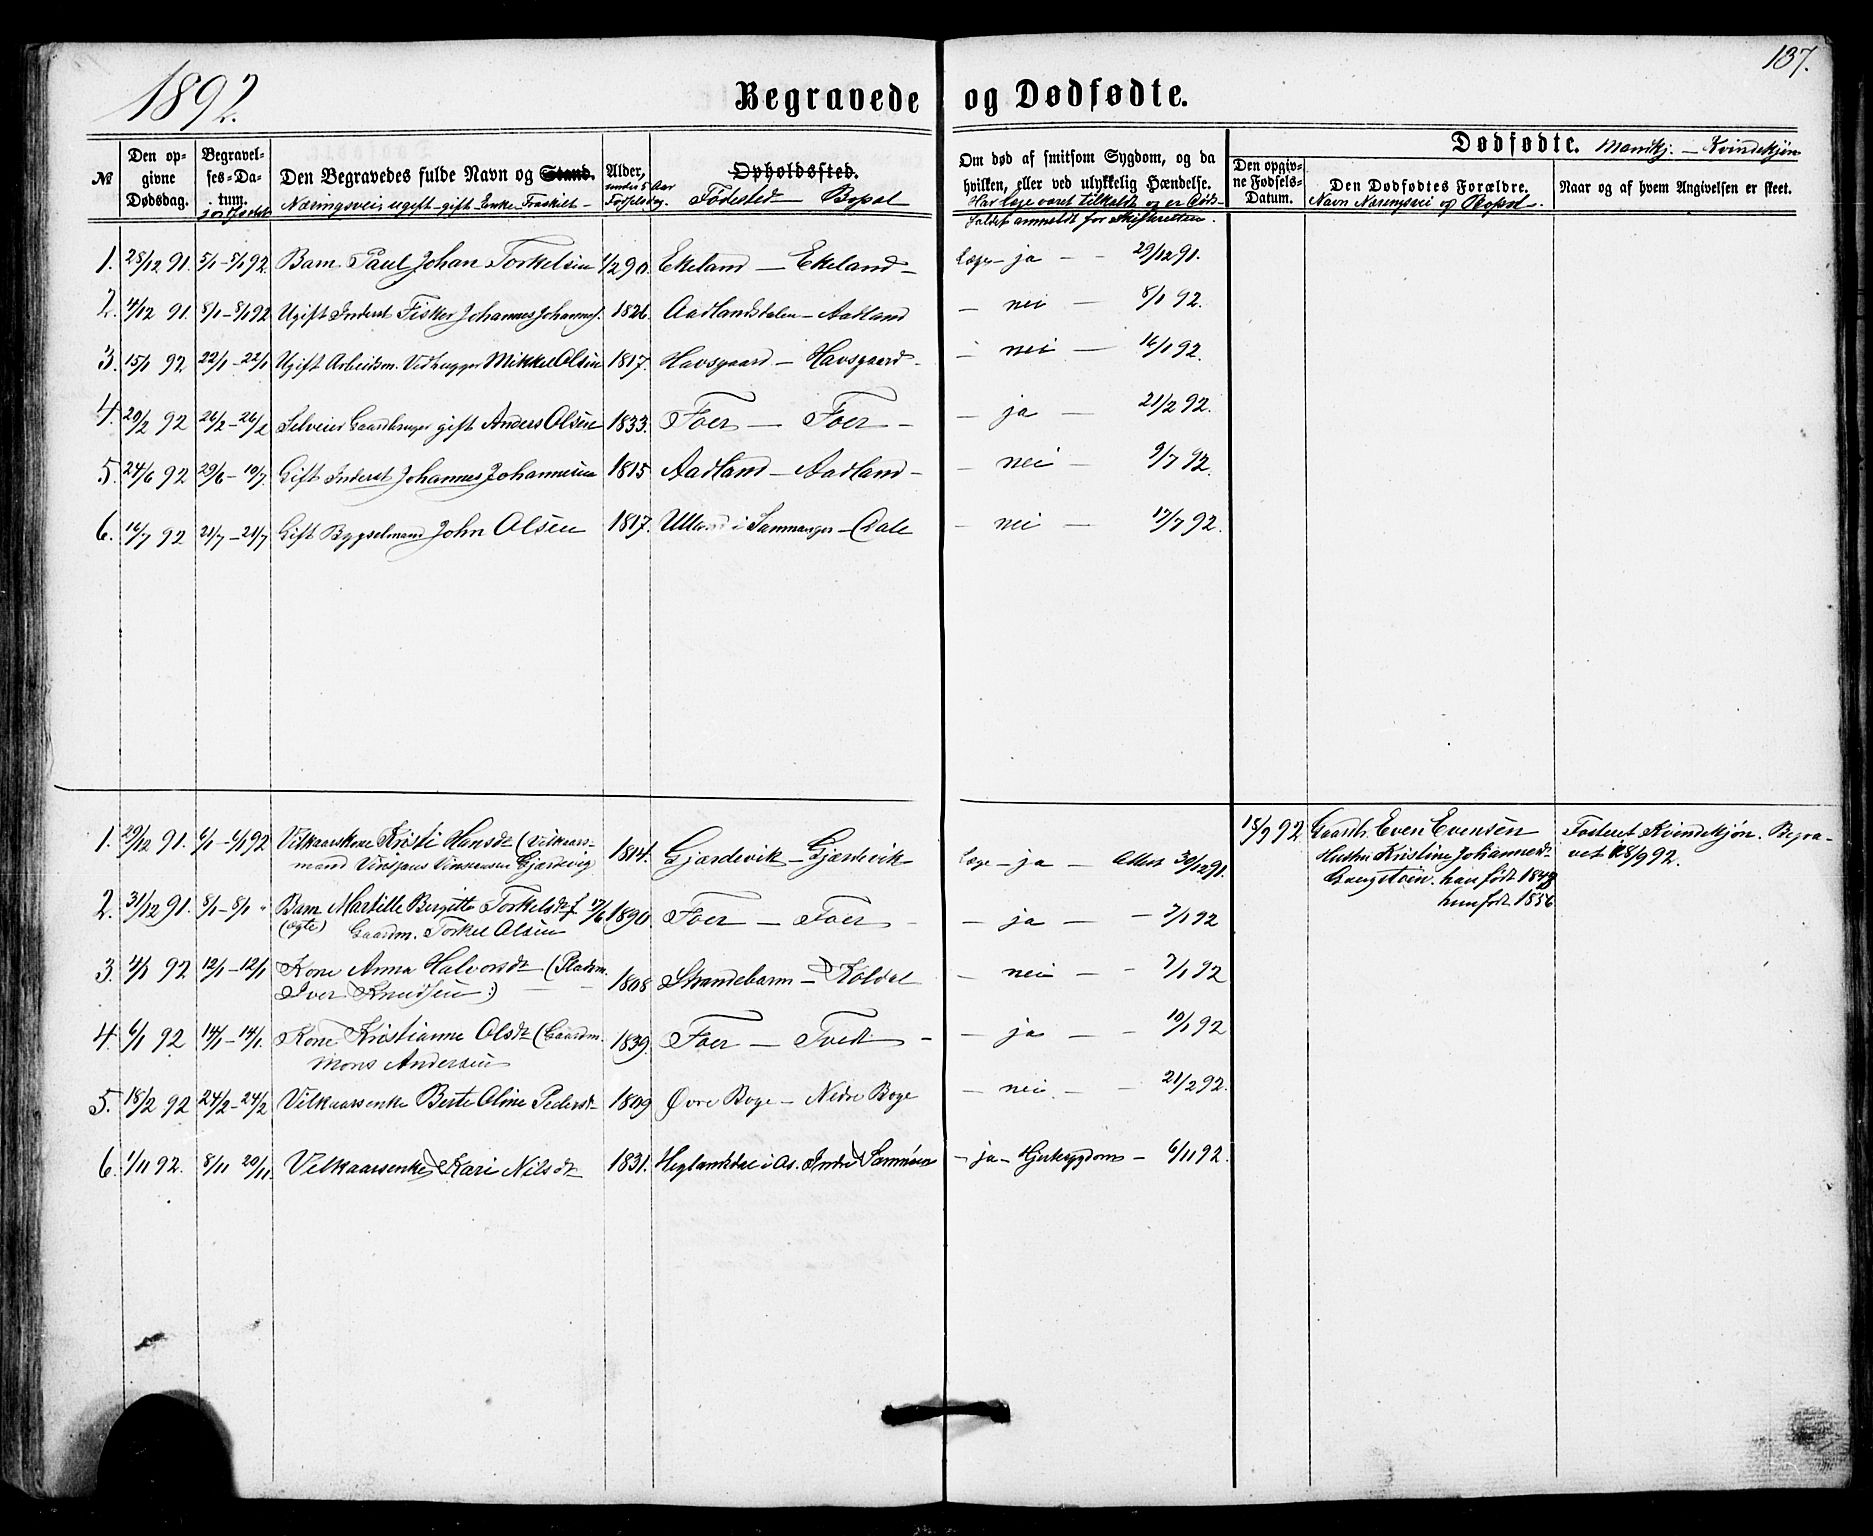 137.
1892.
Begravede og Dødfødte.
№
Den opgivne Dødsdag.
Begravelses-Datum. jordfæstet
Den Begravedes fulde Navn og Stand.
Næringsvei ugift - gift - Enke Fraskilt -
Alder, under 5 Aar Fødselsdag.
Opholdssted.
Fødested - Bopæl
Om død af smitsom Sygdom, og da
hvilken, eller ved ulykkelig Hændelse.
Har læge været tilkaldt og er Døds-
faldet anmeldt for Skifteretten.
Dødfødte. Mandkj. - Kvindekjøn
Den opgivne Fødsels-Datum.
Den Dødfødtes Forældre.
Navn Næringsvei og Bopæl.
Naar og af hvem Angivelsen er skeet.
1. 28/12 91. 5/1 - 5/1 92. Barn Paul Johan Torkelsen 1/2 90. Ekeland - Ekeland - Læge - ja - - 29/12 91.
2. 4/12 91. 8/1 - 8/1 92 Ugift Inderst Fisker Johannes Johannes. 1826. Aadlandsdalen - Aadland - nei - 8/1 92.
3. 15/1 92 22/1 - 22/1 Ugift Arbeidsm. Vedhugger Mikkel Olsen 1817. Havsgaard - Havsgaard - - nei - 16/1 92.
4. 20/2 92 26/2 - 26/2 Selveier Gaardbruger gift Anders Olsen 1833. Foer - Foer - - ja - 21/2 92.
5. 24/6 92 29/6 - 10/7. Gift Inderst Johannes Johannesen 1815 Aadland - Aadland - - nei - 9/7 92.
6. 16/7 92 21/7 - 21/7 Gift Bygselmand John Olsen 1817. i Samnanger - Dale - nei - 17/7 92.
1. 29/12 91. 6/1 - 6/1 92 Vilkaarskone Kristi Hansdt (Vilkaars-
mand Gjærdevig 1814. Gjærdevik - Gjærdevik - Læge - ja - Attest 30/12 91.
18/9 92 Gaardb. Even Evensen
Hustru Kristine Johannesdt
han født 1848
hun født 1856
Fosteret Kvindekjøn. Begra-
vet 28/9 92.
2. 31/12 91. 8/1 - 8/1 " Barn Martille Bergitte Torkelsdt f 17/6 1890. Foer - Foer - - ja - - 7/1 92
(ægte) Gaardm. Torkel Olsen
3. 4/1 92 12/1 - 12/1 Kone Anna Halvorsdt (Pladsm.
Iver Knudsen:) 1808 Strandebarm - Koldal - nei - - 7/1 92
4. 6/1 92 14/1 - 14/1. Kone Kristianne Olsdt (Gaardm.
Mons Andersen 1839. Foer - Tvedt - - ja - - 10/1 92
5. 18/2 92 24/2 - 24/2 Vilkaarsenke Berte Oline Pedersdt 1809 Øvre Boge - Nedre Boge - nei - - 21/2 92.
6. 1/11 92. 8/11 20/11. Vilkaarsenke Kari Nilsdt 1831. Heglandsdal i Os. Indre Samnøen - ja - Hjertesygdom - 6/11 92.